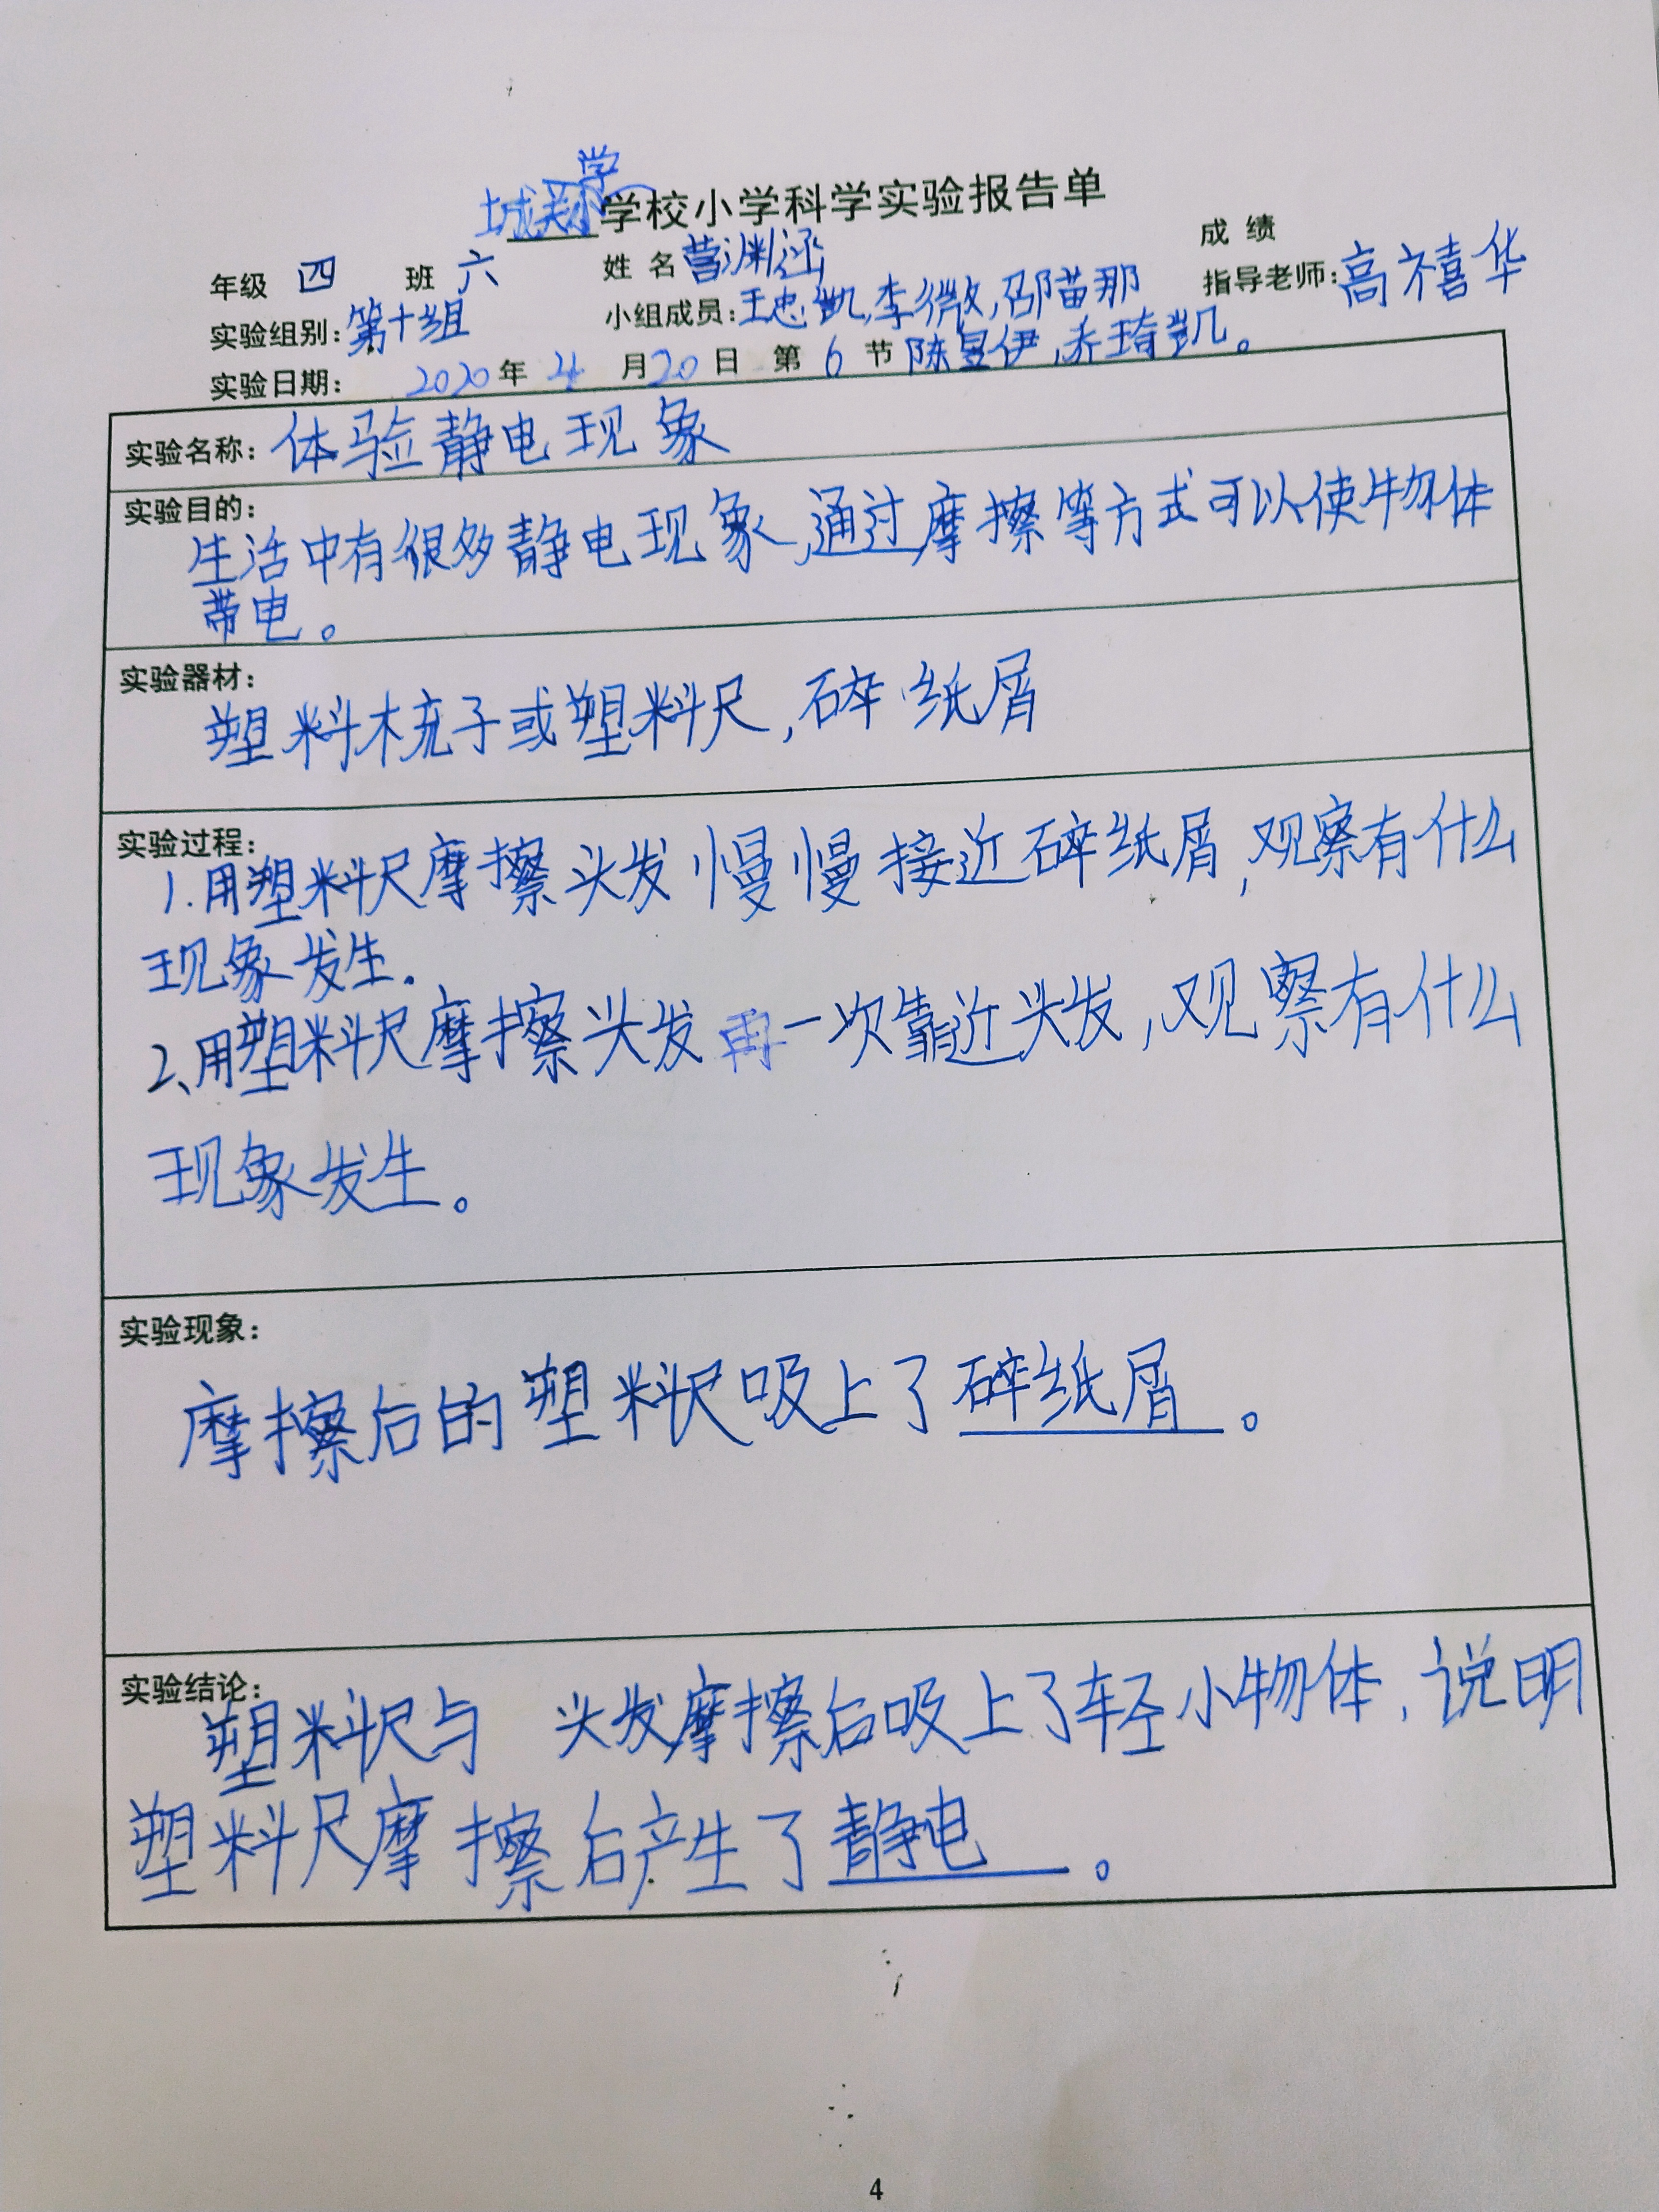 城关小学学校小学科学实验报告单
年级 四 班 六 姓名 营渊涵 成绩
实验组别:第十组 小组成员:王忠凯,李微,邵苗那 指导老师:高禧华
实验日期: 2020年 4 月20日 第 6 节 陈昱伊,乔琦凯。
实验名称:体验静电现象
实验目的:
生活中有很多静电现象,通过摩擦等方式可以使物体
带电。
实验器材:
塑料梳子或塑料尺,碎纸屑
实验过程:
1.用塑料尺摩擦头发慢慢接近碎纸屑,观察有什么
现象发生.
2、用塑料尺摩擦头发再一次靠近头发,观察有什么
现象发生。
实验现象:
摩擦后的塑料尺吸上了碎纸屑。
实验结论:
塑料尺与 头发摩擦后吸上了轻小物体,说明
塑料尺摩擦后产生了静电。
4